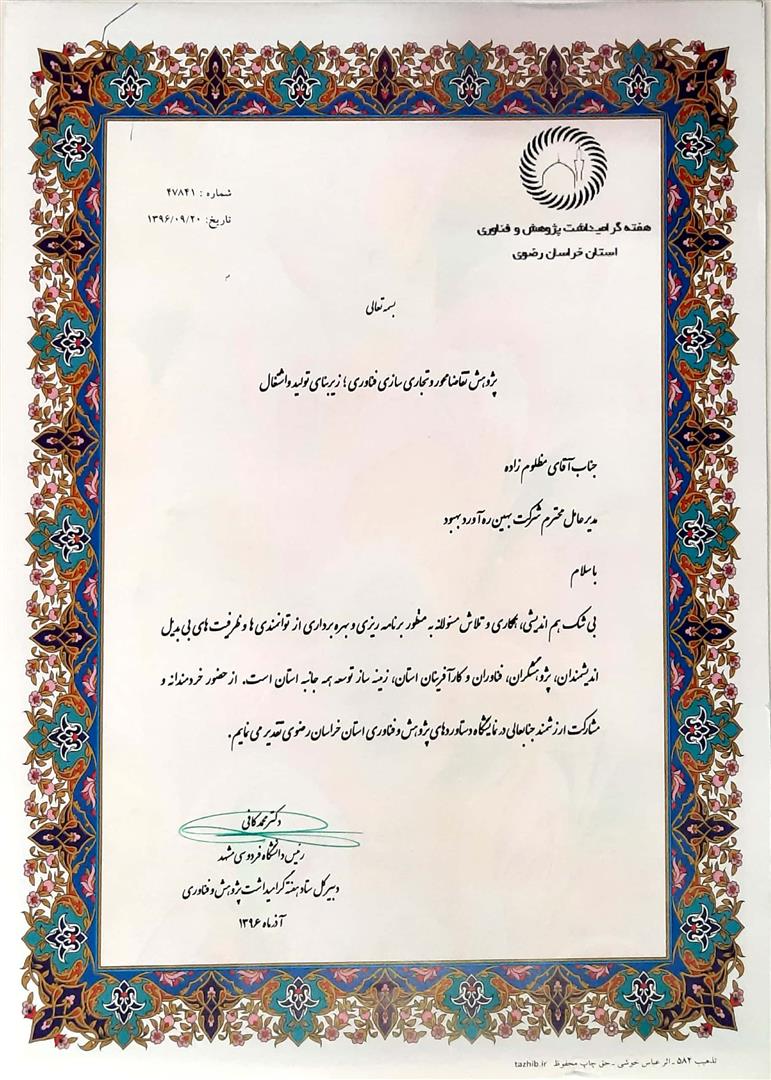 هفته گرامیداشت پژوهش و فناوری
استان خراسان رضوی
شماره : ۴۷۸۴۱
تاریخ: ۱۳۹۶/۰۹/۲۰
بسمه تعالی
پژوهش تقاضامحور و تجاری سازی فناوری ؛ زیربنای تولید و اشتغال
جناب آقای مظلوم زاده
مدیرعامل محترم شرکت بهین ره آورد بهبود
با سلام
بی شک هم اندیشی، همکاری و تلاش مسئولانه به منظور برنامه ریزی و بهره برداری از توانمندی ها و ظرفیت های بی بدیل
اندیشمندان، پژوهشگران، فناوران و کارآفرینان استان، زمینه ساز توسعه همه جانبه استان است. از حضور خردمندانه و
مشارکت ارزشمند جنابعالی در نمایشگاه دستاوردهای پژوهش و فناوری استان خراسان رضوی تقدیر می نمایم.
دکتر محمد کافی
رئیس دانشگاه فردوسی مشهد
دبیر کل ستاد هفته گرامیداشت پژوهش و فناوری
آذرماه ۱۳۹۶
تذهیب ۵۸۲ ـ اثر عباس خوشی ـ حق چاپ محفوظ tazhib.ir